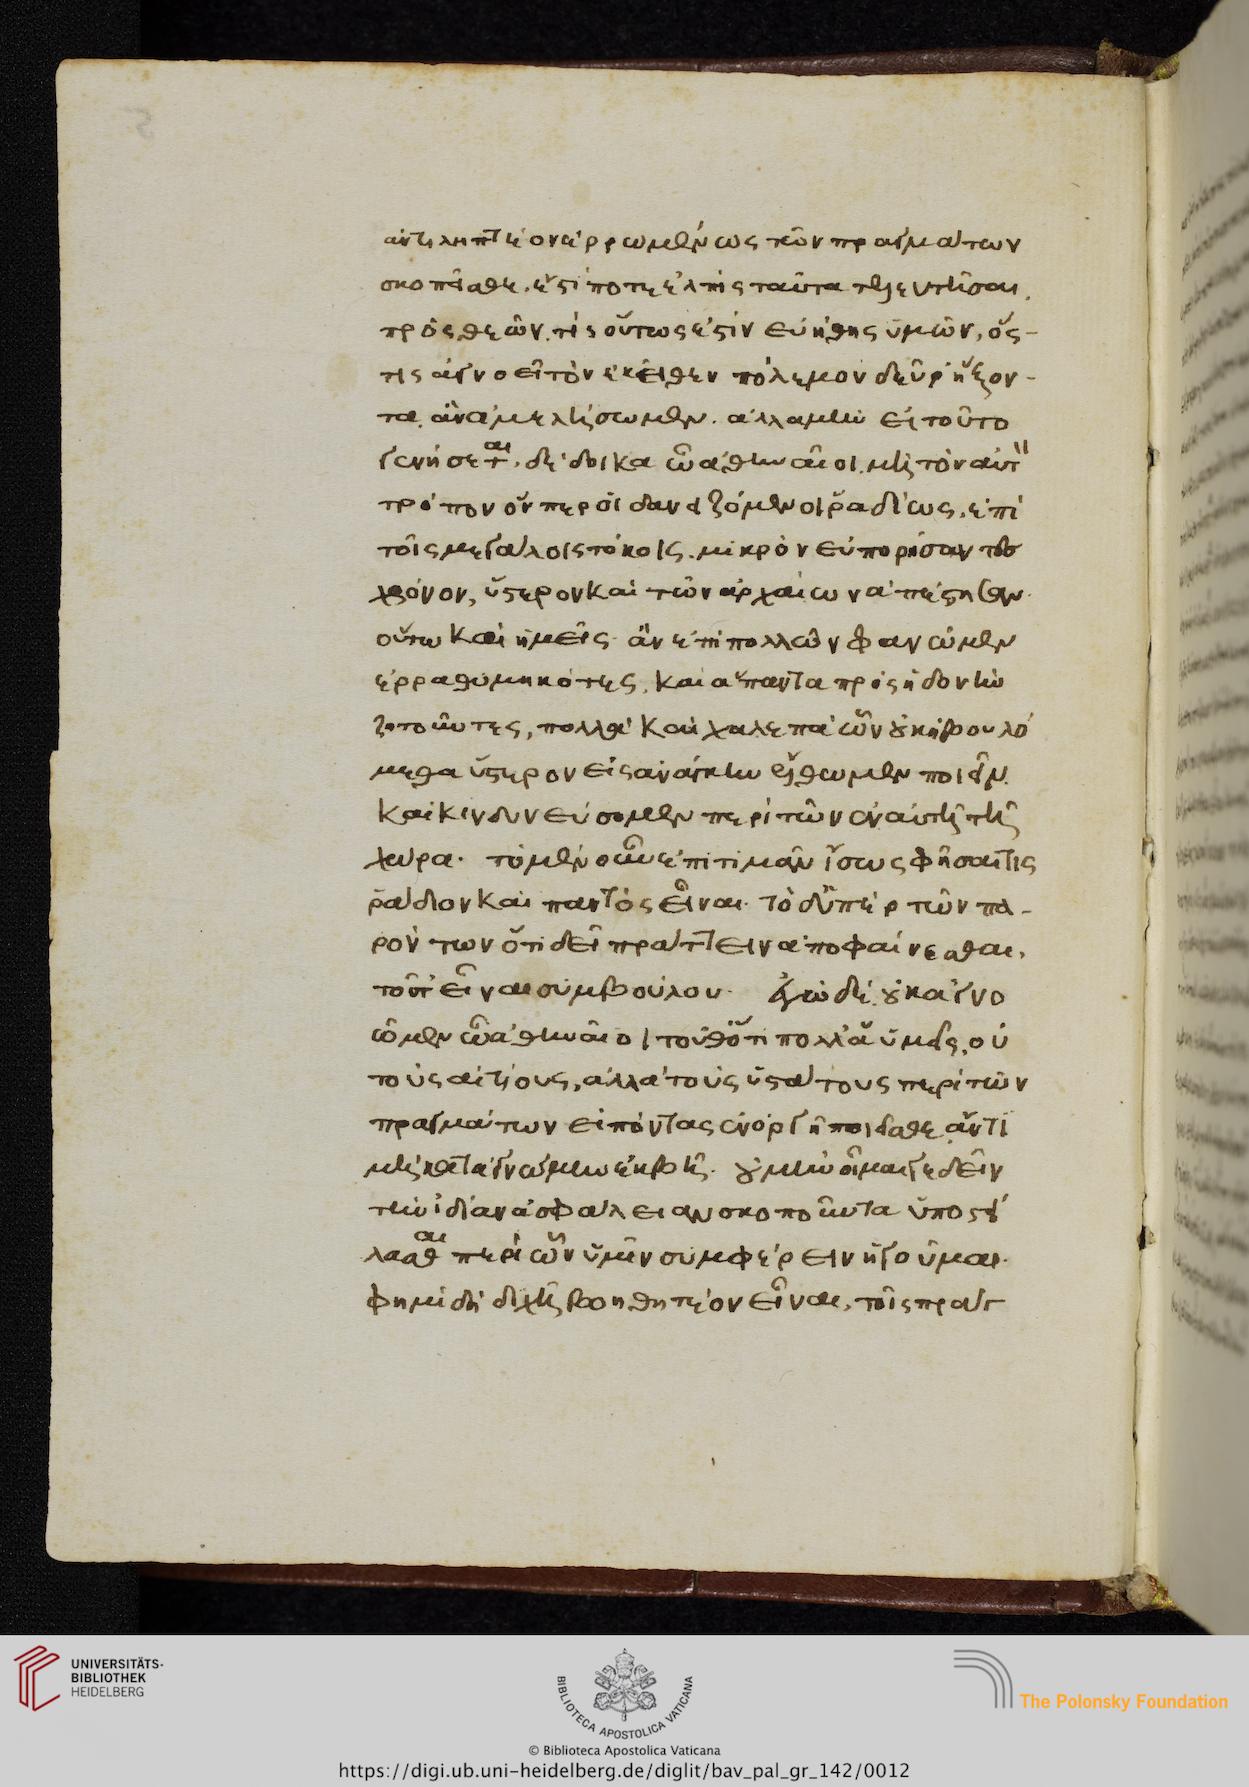 ἀντιληπτέον ἐρρωμένως τῶν πραγμάτων
σκοπεῖσθε, εἰς τί ποτε ἐλπὶς ταῦτα τελευτῆσαι.
πρὸς θεῶν, τίς οὕτως ἐστὶν εὐήθης ὑμῶν, ὅς-
τις ἀγνοεῖ τὸν ἐκεῖθεν πόλεμον δεῦρ' ἥξον-
τα, ἂν ἀμελήσωμεν. ἀλλαμὴν εἰ τοῦτο
γενήσεται, δέδοικα ὦ ἀθηναῖοι, μὴ τὸν αὐτὸν
τρόπον ὅνπερ οἱ δανειζόμενοι ῥαδίως, ἐπὶ
τοῖς μεγάλοις τόκοις, μικρὸν εὐπορήσαντες
χρόνον, ὕστερον καὶ τῶν ἀρχαίων ἀπέστησαν.
οὕτω καὶ ἡμεῖς ἂν ἐπιπολλῶν φανῶμεν
ἐρραθυμηκότες, καὶ ἅπαντα πρὸς ἡδονὴν
ζητοῦντες, πολλὰ καὶ χαλεπὰ ὧν οὐκ ἠβουλό
μεθα ὕστερον εἰς ἀνάγκην ἔλθωμεν ποιεῖν.
καὶ κινδυνεύσομεν περὶ τῶν ἐν αὐτῇ τῇ
χώρα. τὸ μὲν οὖν ἐπιτιμᾶν ἴσως φήσαι τὶς
ῥάδιον καὶ παντὸς εἶναι. τὸ δ' ὑπὲρ τῶν πα-
ρόντων ὅτι δεῖ πράττειν ἀποφαίνεσθαι,
τοῦτ' εἶναι συμβούλου. ἐγὼ δὲ, οὐκ ἀγνο
ῶ μὲν ὦ ἀθηναῖοι τοῦθ' ὅτι πολλάκις ὑμεῖς, οὐ
τοὺς αἰτίους, ἀλλὰ τοὺς ὑστάτους περὶ τῶν
πραγμάτων εἰπόντας ἐν ὀργῇ ποιεῖσθε, ἄν τι
μὴ κατὰ γνώμην ἐκβῇ. οὐ μὴν οἶμαι γε δεῖν
τὴν ἰδίαν ἀσφάλειαν σκοποῦντα ὑποστεί
λασθαι περὶ ὧν ὑμῖν συμφέρειν ἡγοῦμαι.
φημὶ δὴ διχῇ βοηθητέον εἶναι, τοῖς πράγ
UNIVERSITÄTS-
BIBLIOTHEK
HEIDELBERG
BIBLIOTECA APOSTOLICA VATICANA
The Polonsky Foundation
© Biblioteca Apostolica Vaticana
https://digi.ub.uni-heidelberg.de/diglit/bav_pal_gr_142/0012